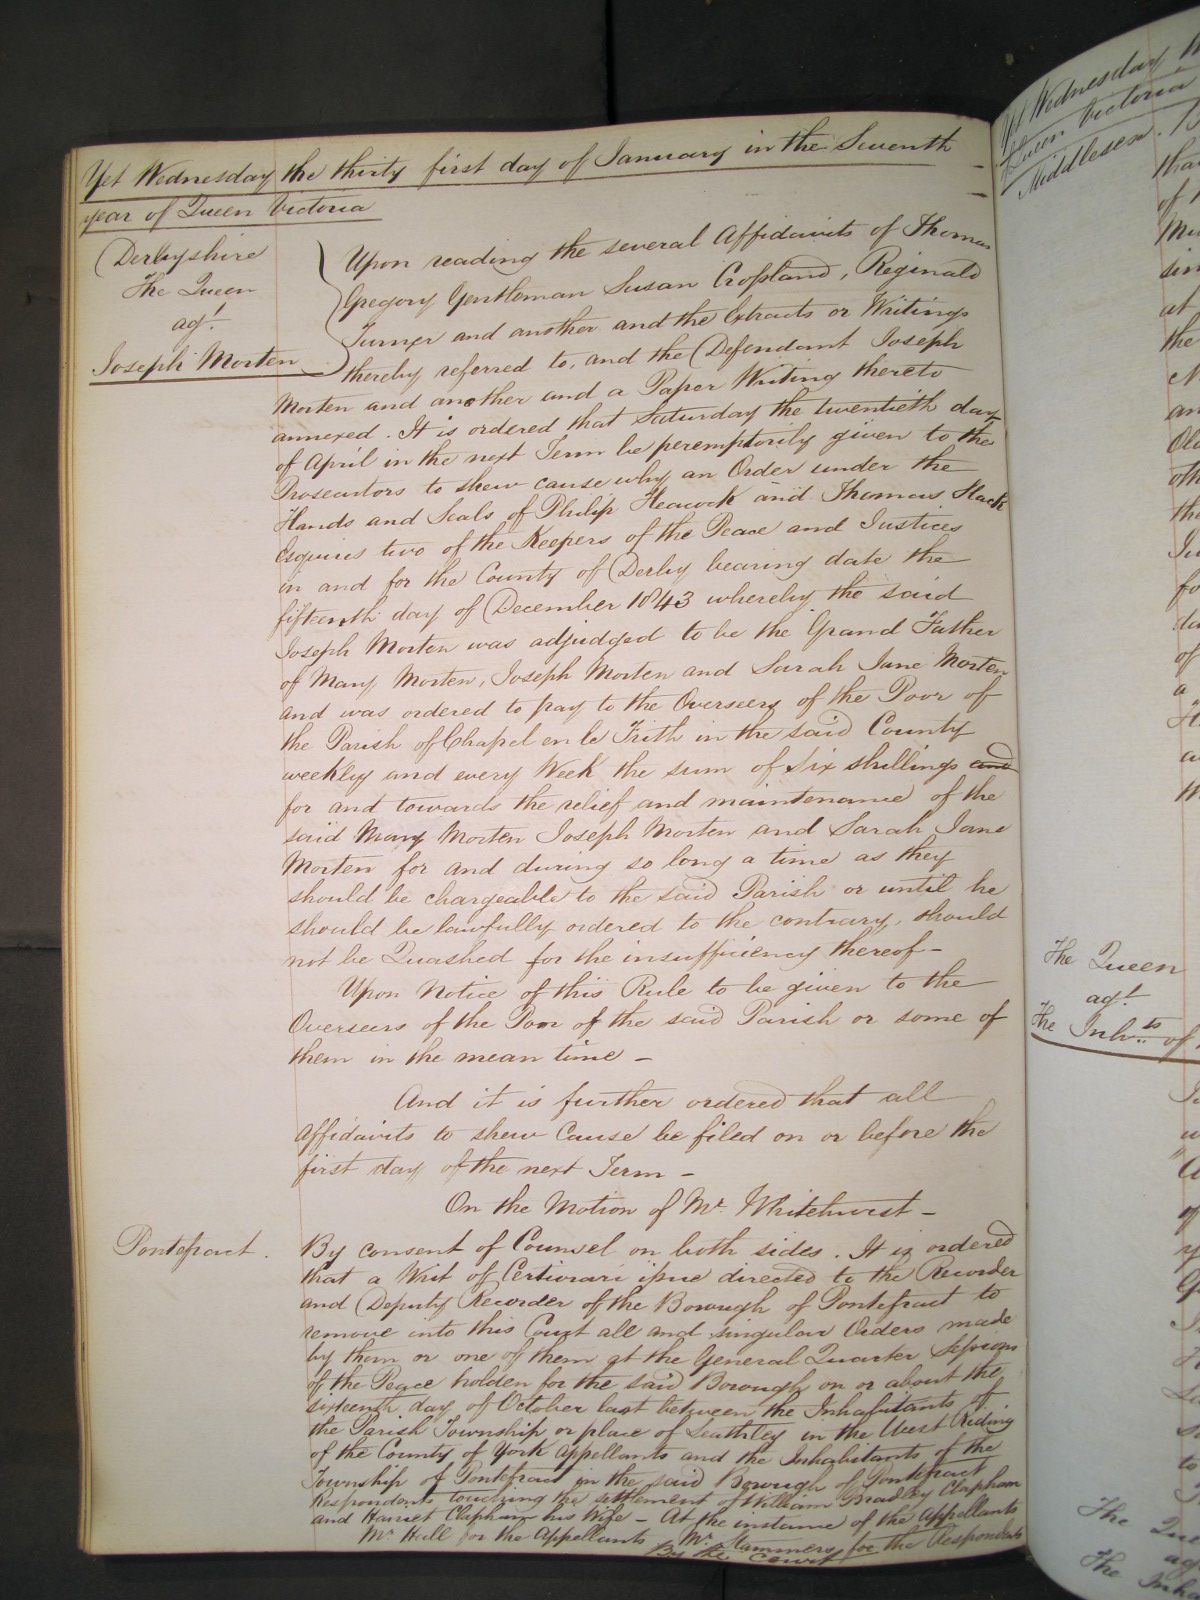 Yet Wednesday the thirty first day of January in the Seventh
year of Queen Victoria
Derbyshire
The Queen
agt.
Joseph Morten
Upon reading the several Affidavits of Thomas
Gregory Gentleman Susan Cropland, Reginald
Turner and another and the Extracts or Writings
thereby referred to, and the Defendant Joseph
Morten and another and a Paper Writing thereto
annexed. It is ordered that Saturday the twentieth day
of April in the next Term be peremptorily given to the
Prosecutors to shew cause why an Order under the
Hands and Seals of Philip Heacock and Thomas Slack
Esquires two of the Keepers of the Peace and Justices
in and for the County of Derby bearing date the
fifteenth day of December 1843 whereby the said
Joseph Morten was adjudged to be the Grand Father
of Mary Morten, Joseph Morten and Sarah Jane Morten
and was ordered to pay to the Overseers of the Poor of
the Parish of Chapel en le Frith in the said County
weekly and every Week the sum of Six shillings and
for and towards the relief and maintenance of the
said Mary Morten Joseph Morten and Sarah Jane
Morten for and during so long a time as they
should be chargeable to the said Parish or until he
should be lawfully ordered to the contrary, should
not be Quashed for the insufficiency thereof –
Upon Notice of this Rule to be given to the
Overseers of the Poor of the said Parish or some of
them in the mean time –
And it is further ordered that all
Affidavits to shew Cause be filed on or before the
first day of the next Term –
On the Motion of Mr. Whitehurst –
Pontefract.
By consent of Counsel on both sides. It is ordered
that a Writ of Certiorari issue directed to the Recorder
and Deputy Recorder of the Borough of Pontefract to
remove into this Court all and singular Orders made
by them or one of them at the General Quarter Sessions
of the Peace holden for the said Borough on or about the
sixteenth day of October last between the Inhabitants of
the Parish Township or place of Leathley in the West Riding
of the County of York Appellants and the Inhabitants of the
Township of Pontefract in the said Borough of Pontefract
Respondents touching the settlement of William Bradley Clapham
and Harriet Clapham his Wife – At the instance of the Appellants
Mr Hall for the Appellants Mr. Stammers for the Respondents
By the Court
Yet Wednesday
Queen Victoria
Middlesex.
The Queen
agt.
The Inhts of